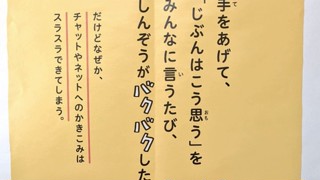 手をあげて、
「じぶんはこう思う」を
みんなに言うたび、
しんぞうがバクバクした
だけどなぜか、
チャットやネットへのかきこみは
スラスラできてしまう。